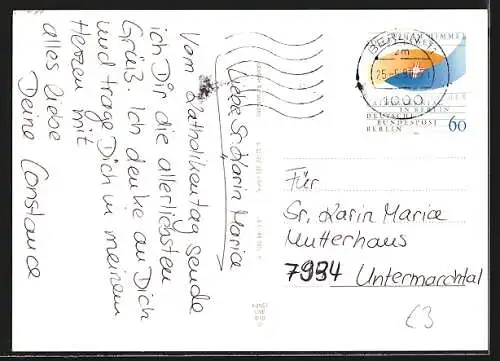 Liebe Sr. Karin Maria
Vom Katholikentag sende
ich Dir die allerliebsten
Grüß. Ich denke an Dich
und trage Dich in meinem
Herzen mit
alles liebe
Deine Constance
HIMMEL
IN BERLIN
DEUTSCHE
BUNDESPOST
BERLIN
60
BERLIN
1000
Für
Sr. Karin Maria
Mutterhaus
7984 Untermarchtal
£3